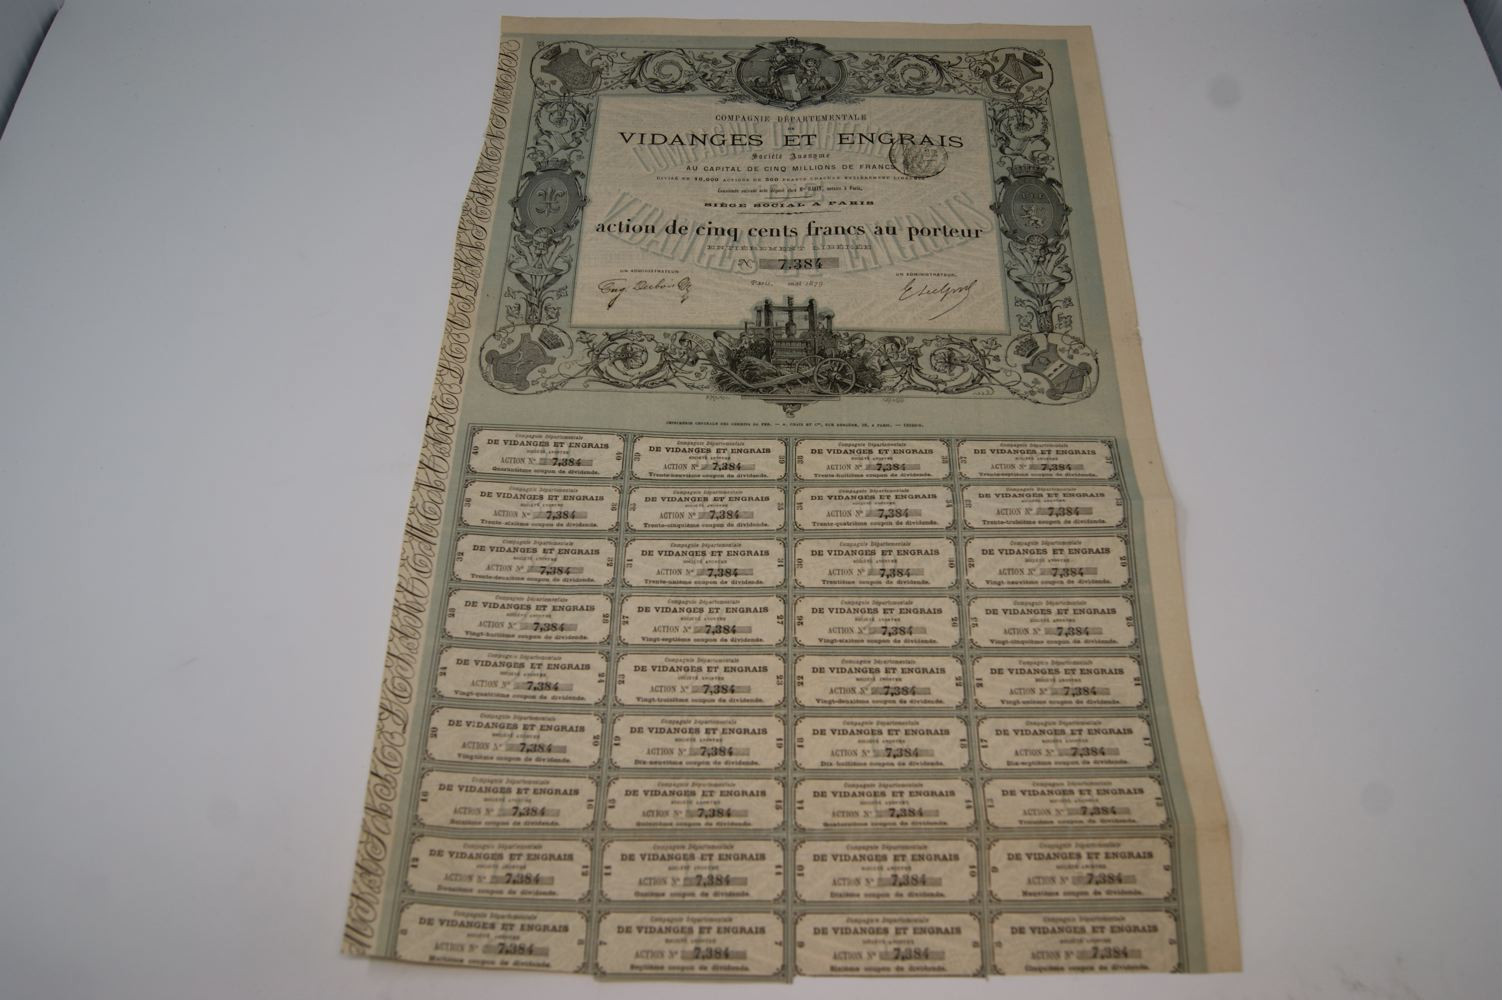 COMPAGNIE DÉPARTEMENTALE
DE
VIDANGES ET ENGRAIS
Société Anonyme
AU CAPITAL DE CINQ MILLIONS DE FRANCS
DIVISÉ EN 10,000 ACTIONS DE 500 FRANCS CHACUNE ENTIÈREMENT LIBÉRÉES
SIÈGE SOCIAL A PARIS
action de cinq cents francs au porteur
ENTIÈREMENT LIBÉRÉE
No 7,384
UN ADMINISTRATEUR
Paris, mai 1879
UN ADMINISTRATEUR,
IMPRIMERIE CENTRALE DES CHEMINS DE FER. — A. CHAIX ET Cie, RUE BERGÈRE, 20, A PARIS.
40 Compagnie Départementale 40
DE VIDANGES ET ENGRAIS
SOCIÉTÉ ANONYME
ACTION No 7,384
Quarantième coupon de dividende.
39 Compagnie Départementale 39
DE VIDANGES ET ENGRAIS
SOCIÉTÉ ANONYME
ACTION No 7,384
Trente-neuvième coupon de dividende.
38 Compagnie Départementale 38
DE VIDANGES ET ENGRAIS
SOCIÉTÉ ANONYME
ACTION No 7,384
Trente-huitième coupon de dividende.
37 Compagnie Départementale 37
DE VIDANGES ET ENGRAIS
SOCIÉTÉ ANONYME
ACTION No 7,384
Trente-septième coupon de dividende.
36 Compagnie Départementale 36
DE VIDANGES ET ENGRAIS
SOCIÉTÉ ANONYME
ACTION No 7,384
Trente-sixième coupon de dividende.
35 Compagnie Départementale 35
DE VIDANGES ET ENGRAIS
SOCIÉTÉ ANONYME
ACTION No 7,384
Trente-cinquième coupon de dividende.
34 Compagnie Départementale 34
DE VIDANGES ET ENGRAIS
SOCIÉTÉ ANONYME
ACTION No 7,384
Trente-quatrième coupon de dividende.
33 Compagnie Départementale 33
DE VIDANGES ET ENGRAIS
SOCIÉTÉ ANONYME
ACTION No 7,384
Trente-troisième coupon de dividende.
32 Compagnie Départementale 32
DE VIDANGES ET ENGRAIS
SOCIÉTÉ ANONYME
ACTION No 7,384
Trente-deuxième coupon de dividende.
31 Compagnie Départementale 31
DE VIDANGES ET ENGRAIS
SOCIÉTÉ ANONYME
ACTION No 7,384
Trente-unième coupon de dividende.
30 Compagnie Départementale 30
DE VIDANGES ET ENGRAIS
SOCIÉTÉ ANONYME
ACTION No 7,384
Trentième coupon de dividende.
29 Compagnie Départementale 29
DE VIDANGES ET ENGRAIS
SOCIÉTÉ ANONYME
ACTION No 7,384
Vingt-neuvième coupon de dividende.
28 Compagnie Départementale 28
DE VIDANGES ET ENGRAIS
SOCIÉTÉ ANONYME
ACTION No 7,384
Vingt-huitième coupon de dividende.
27 Compagnie Départementale 27
DE VIDANGES ET ENGRAIS
SOCIÉTÉ ANONYME
ACTION No 7,384
Vingt-septième coupon de dividende.
26 Compagnie Départementale 26
DE VIDANGES ET ENGRAIS
SOCIÉTÉ ANONYME
ACTION No 7,384
Vingt-sixième coupon de dividende.
25 Compagnie Départementale 25
DE VIDANGES ET ENGRAIS
SOCIÉTÉ ANONYME
ACTION No 7,384
Vingt-cinquième coupon de dividende.
24 Compagnie Départementale 24
DE VIDANGES ET ENGRAIS
SOCIÉTÉ ANONYME
ACTION No 7,384
Vingt-quatrième coupon de dividende.
23 Compagnie Départementale 23
DE VIDANGES ET ENGRAIS
SOCIÉTÉ ANONYME
ACTION No 7,384
Vingt-troisième coupon de dividende.
22 Compagnie Départementale 22
DE VIDANGES ET ENGRAIS
SOCIÉTÉ ANONYME
ACTION No 7,384
Vingt-deuxième coupon de dividende.
21 Compagnie Départementale 21
DE VIDANGES ET ENGRAIS
SOCIÉTÉ ANONYME
ACTION No 7,384
Vingt-unième coupon de dividende.
20 Compagnie Départementale 20
DE VIDANGES ET ENGRAIS
SOCIÉTÉ ANONYME
ACTION No 7,384
Vingtième coupon de dividende.
19 Compagnie Départementale 19
DE VIDANGES ET ENGRAIS
SOCIÉTÉ ANONYME
ACTION No 7,384
Dix-neuvième coupon de dividende.
18 Compagnie Départementale 18
DE VIDANGES ET ENGRAIS
SOCIÉTÉ ANONYME
ACTION No 7,384
Dix-huitième coupon de dividende.
17 Compagnie Départementale 17
DE VIDANGES ET ENGRAIS
SOCIÉTÉ ANONYME
ACTION No 7,384
Dix-septième coupon de dividende.
16 Compagnie Départementale 16
DE VIDANGES ET ENGRAIS
SOCIÉTÉ ANONYME
ACTION No 7,384
Seizième coupon de dividende.
15 Compagnie Départementale 15
DE VIDANGES ET ENGRAIS
SOCIÉTÉ ANONYME
ACTION No 7,384
Quinzième coupon de dividende.
14 Compagnie Départementale 14
DE VIDANGES ET ENGRAIS
SOCIÉTÉ ANONYME
ACTION No 7,384
Quatorzième coupon de dividende.
13 Compagnie Départementale 13
DE VIDANGES ET ENGRAIS
SOCIÉTÉ ANONYME
ACTION No 7,384
Treizième coupon de dividende.
12 Compagnie Départementale 12
DE VIDANGES ET ENGRAIS
SOCIÉTÉ ANONYME
ACTION No 7,384
Douzième coupon de dividende.
11 Compagnie Départementale 11
DE VIDANGES ET ENGRAIS
SOCIÉTÉ ANONYME
ACTION No 7,384
Onzième coupon de dividende.
10 Compagnie Départementale 10
DE VIDANGES ET ENGRAIS
SOCIÉTÉ ANONYME
ACTION No 7,384
Dixième coupon de dividende.
9 Compagnie Départementale 9
DE VIDANGES ET ENGRAIS
SOCIÉTÉ ANONYME
ACTION No 7,384
Neuvième coupon de dividende.
8 Compagnie Départementale 8
DE VIDANGES ET ENGRAIS
SOCIÉTÉ ANONYME
ACTION No 7,384
Huitième coupon de dividende.
7 Compagnie Départementale 7
DE VIDANGES ET ENGRAIS
SOCIÉTÉ ANONYME
ACTION No 7,384
Septième coupon de dividende.
6 Compagnie Départementale 6
DE VIDANGES ET ENGRAIS
SOCIÉTÉ ANONYME
ACTION No 7,384
Sixième coupon de dividende.
5 Compagnie Départementale 5
DE VIDANGES ET ENGRAIS
SOCIÉTÉ ANONYME
ACTION No 7,384
Cinquième coupon de dividende.